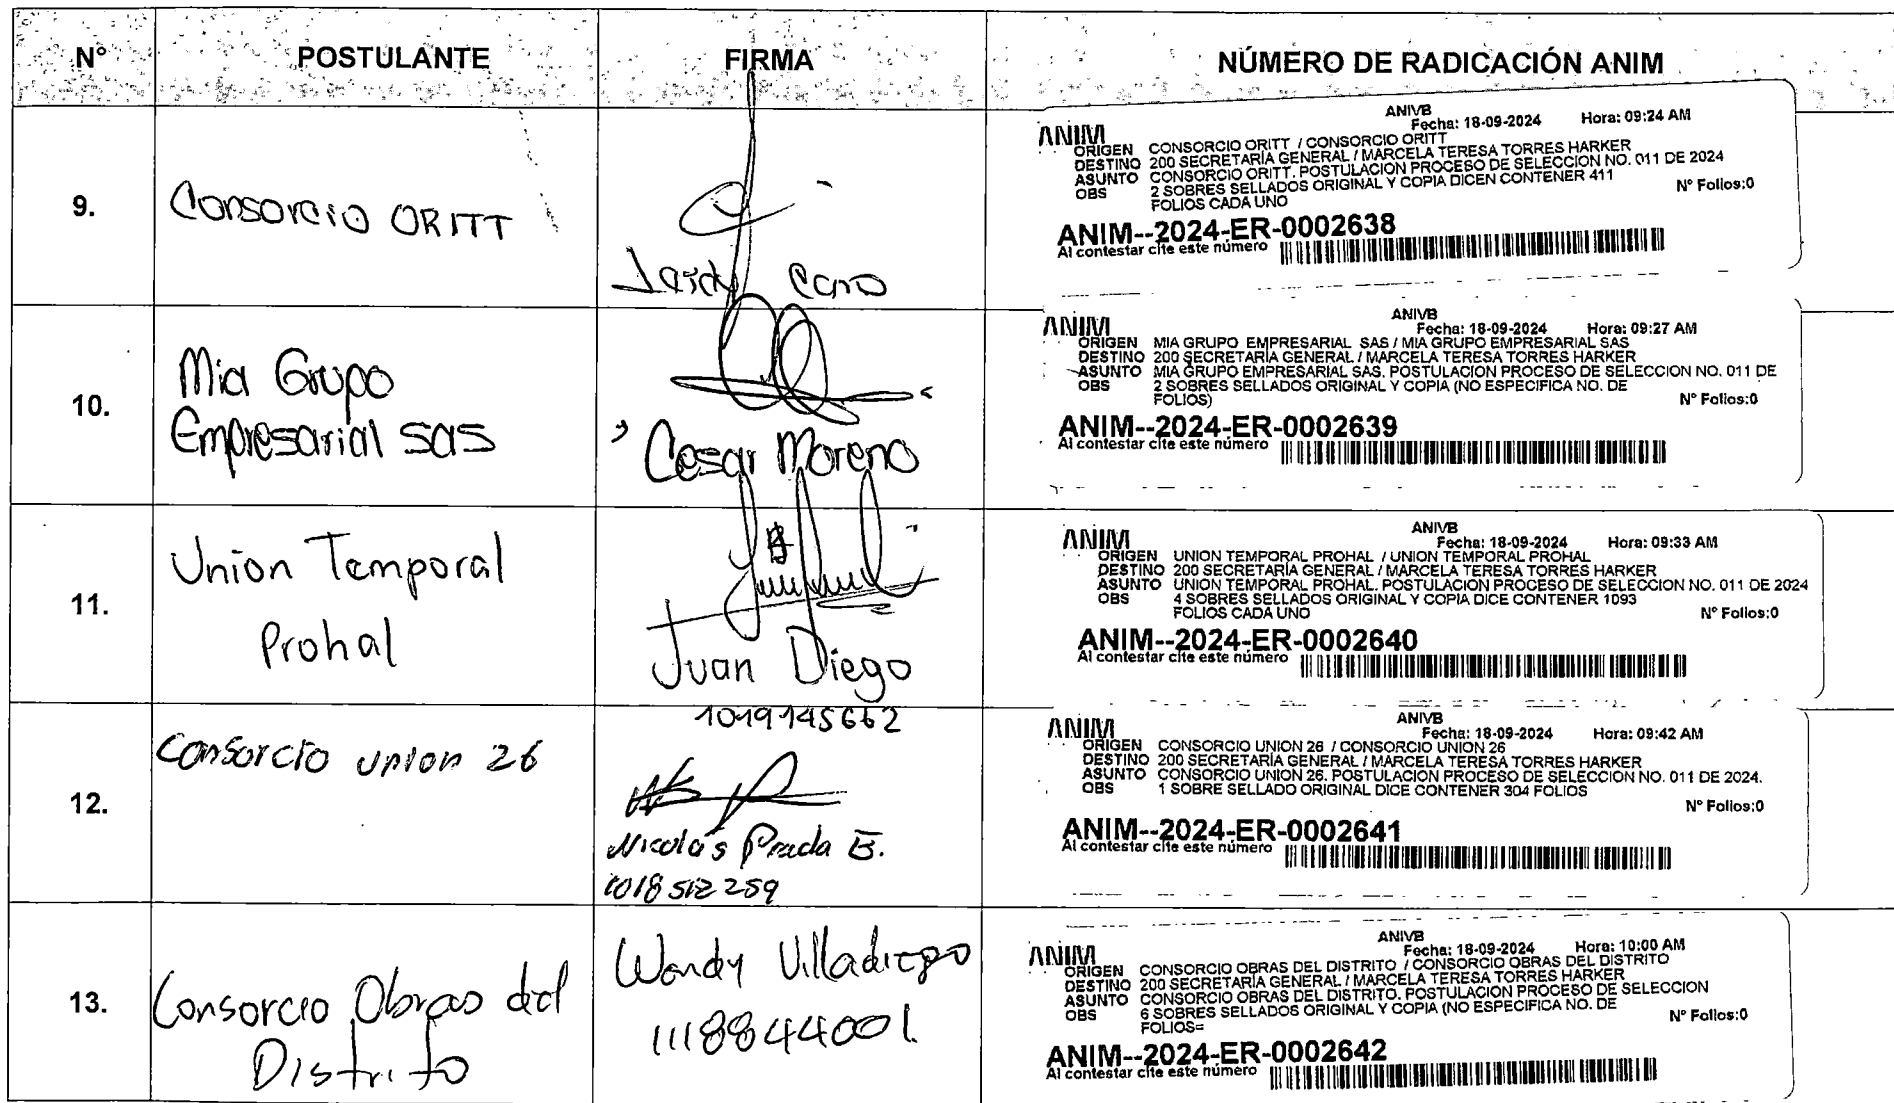 N° POSTULANTE FIRMA NÚMERO DE RADICACIÓN ANIM
9.
Consorcio ORITT
Caro
ANIVB
ANIM Fecha: 18-09-2024 Hora: 09:24 AM
ORIGEN CONSORCIO ORITT / CONSORCIO ORITT
DESTINO 200 SECRETARÍA GENERAL / MARCELA TERESA TORRES HARKER
ASUNTO CONSORCIO ORITT. POSTULACION PROCESO DE SELECCION NO. 011 DE 2024
OBS 2 SOBRES SELLADOS ORIGINAL Y COPIA DICEN CONTENER 411
FOLIOS CADA UNO N° Folios:0
ANIM--2024-ER-0002638
Al contestar cite este número
10.
Mia Grupo
Empresarial sas
Cesar Moreno
ANIVB
ANIM Fecha: 18-09-2024 Hora: 09:27 AM
ORIGEN MIA GRUPO EMPRESARIAL SAS / MIA GRUPO EMPRESARIAL SAS
DESTINO 200 SECRETARÍA GENERAL / MARCELA TERESA TORRES HARKER
ASUNTO MIA GRUPO EMPRESARIAL SAS. POSTULACION PROCESO DE SELECCION NO. 011 DE
OBS 2 SOBRES SELLADOS ORIGINAL Y COPIA (NO ESPECIFICA NO. DE
FOLIOS) N° Folios:0
ANIM--2024-ER-0002639
Al contestar cite este número
11.
Union Temporal
Prohal
Juan Diego
1019145662
ANIVB
ANIM Fecha: 18-09-2024 Hora: 09:33 AM
ORIGEN UNION TEMPORAL PROHAL / UNION TEMPORAL PROHAL
DESTINO 200 SECRETARÍA GENERAL / MARCELA TERESA TORRES HARKER
ASUNTO UNION TEMPORAL PROHAL. POSTULACION PROCESO DE SELECCION NO. 011 DE 2024
OBS 4 SOBRES SELLADOS ORIGINAL Y COPIA DICE CONTENER 1093
FOLIOS CADA UNO N° Folios:0
ANIM--2024-ER-0002640
Al contestar cite este número
12.
Consorcio union 26
Nicolás Prada B.
1018512259
ANIVB
ANIM Fecha: 18-09-2024 Hora: 09:42 AM
ORIGEN CONSORCIO UNION 26 / CONSORCIO UNION 26
DESTINO 200 SECRETARÍA GENERAL / MARCELA TERESA TORRES HARKER
ASUNTO CONSORCIO UNION 26. POSTULACION PROCESO DE SELECCION NO. 011 DE 2024.
OBS 1 SOBRE SELLADO ORIGINAL DICE CONTENER 304 FOLIOS
N° Folios:0
ANIM--2024-ER-0002641
Al contestar cite este número
13.
Consorcio Obras del
Distrito
Wendy Villadiego
1118844001.
ANIVB
ANIM Fecha: 18-09-2024 Hora: 10:00 AM
ORIGEN CONSORCIO OBRAS DEL DISTRITO / CONSORCIO OBRAS DEL DISTRITO
DESTINO 200 SECRETARÍA GENERAL / MARCELA TERESA TORRES HARKER
ASUNTO CONSORCIO OBRAS DEL DISTRITO. POSTULACION PROCESO DE SELECCION
OBS 6 SOBRES SELLADOS ORIGINAL Y COPIA (NO ESPECIFICA NO. DE
FOLIOS= N° Folios:0
ANIM--2024-ER-0002642
Al contestar cite este número